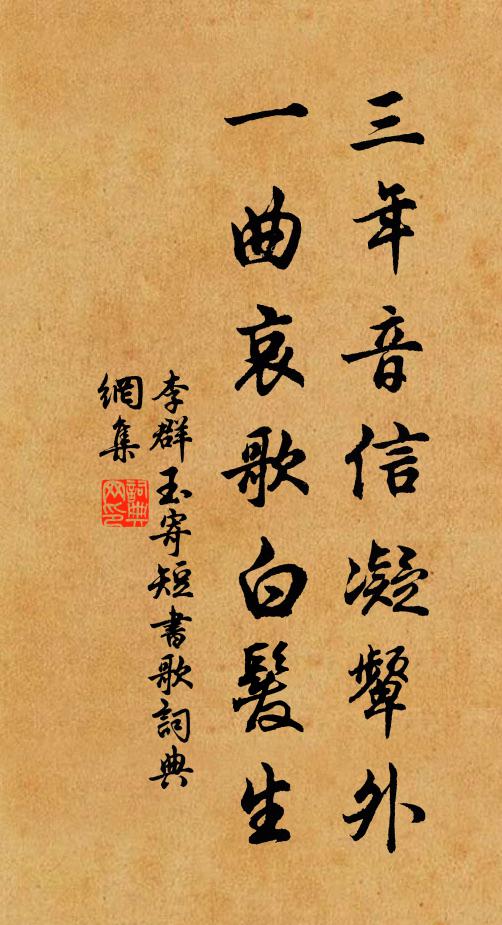 三年音信凝顰外
一曲哀歌白髮生
李群玉寄短書歌詞典
網集
詞典網印